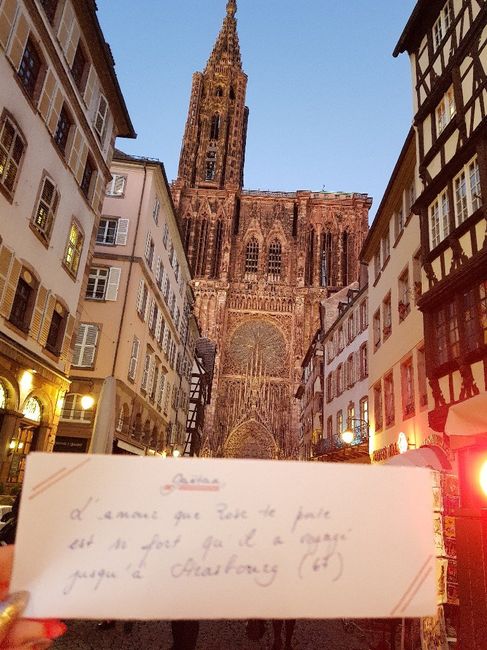 Gaétan
L'amour que Rose te porte
est si fort qu'il a voyagé
jusqu'à Strasbourg (67)